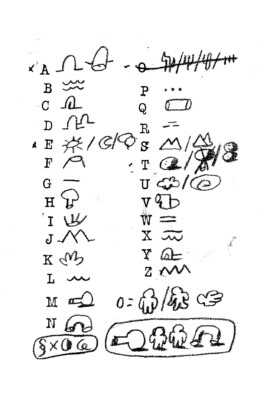 x A
B
C
D
E
F
G
H
I
J
K
L
M
N
O
P
Q
R
S
T
U
V
W
X
Y
Z
O =